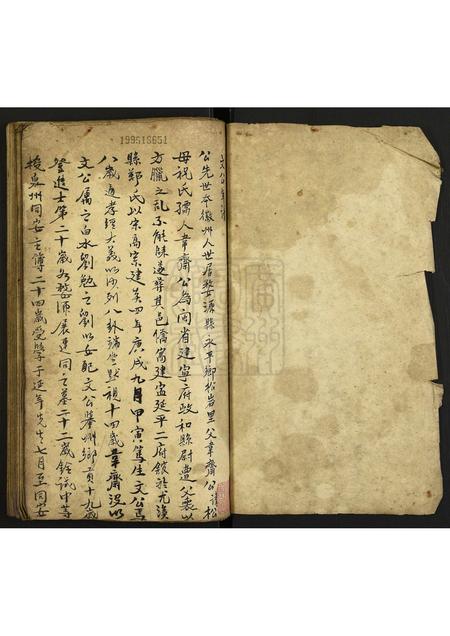 19951S651
公先世本徽州人世居婺源縣永平鄉松岩里父韋齋公諱松
母祝氏孺人韋齋公為閩省建寧府政和縣尉遭父喪以
方臘之亂不能歸遂葬其邑僑寓建延平二府館於尤溪
縣鄭氏以宋高宗建炎四年庚戌九月甲寅篤生文公焉
八歲通孝經大義以沙列八卦端坐默視十四歲韋齋沒以
文公屬之白水劉勉之劉以女配文公舉州鄉貢十九歲
登進士第二十歲如婺源展連同之墓二十二歲銓試中等
授泉州同安主簿二十四歲受學于延年先生七月至同安